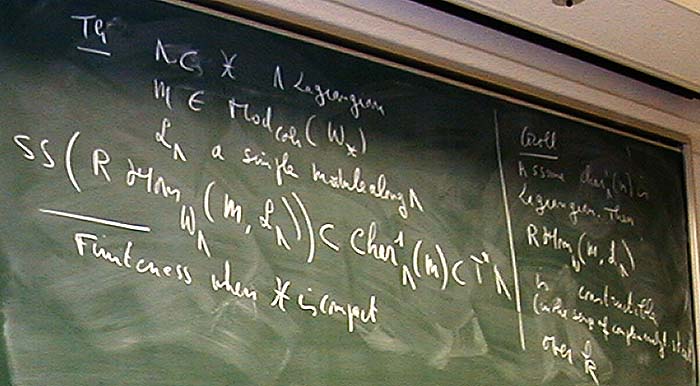 Th
Λ ⊂ 𝔛 Λ Lagrangian
M ∈ Mod_coh(W_𝔛)
L_Λ a simple module along Λ
SS(R Hom_{W_Λ}(M, L_Λ)) ⊂ Char^1_Λ(M) ⊂ T*Λ
Finiteness when 𝔛 is compact
Coroll
Assume Char^1_Λ(M) is
Lagrangian. Then
R Hom_W(M, L_Λ)
is constructible
(in the sense of complex analyt.
over